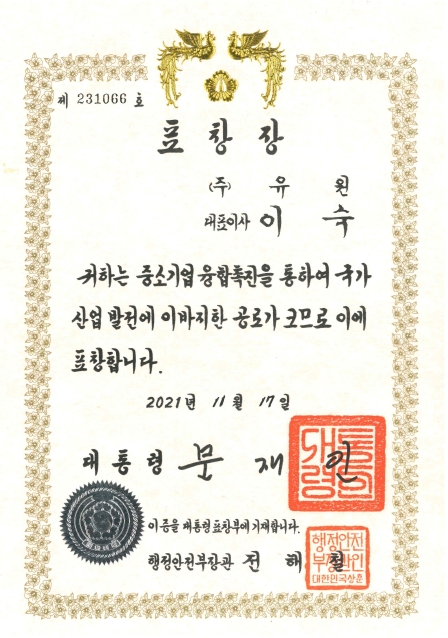 제 231066 호
표 창 장
(주) 유 원
대표이사 이 숙
귀하는 중소기업 융합촉진을 통하여 국가
산업 발전에 이바지한 공로가 크므로 이에
표창합니다.
2021년 11월 17일
대통령 문 재 인
대통령
이 증을 대통령표창부에 기재합니다.
행정안전부장관 전 해 철
행정안전
부장관인
대한민국상훈